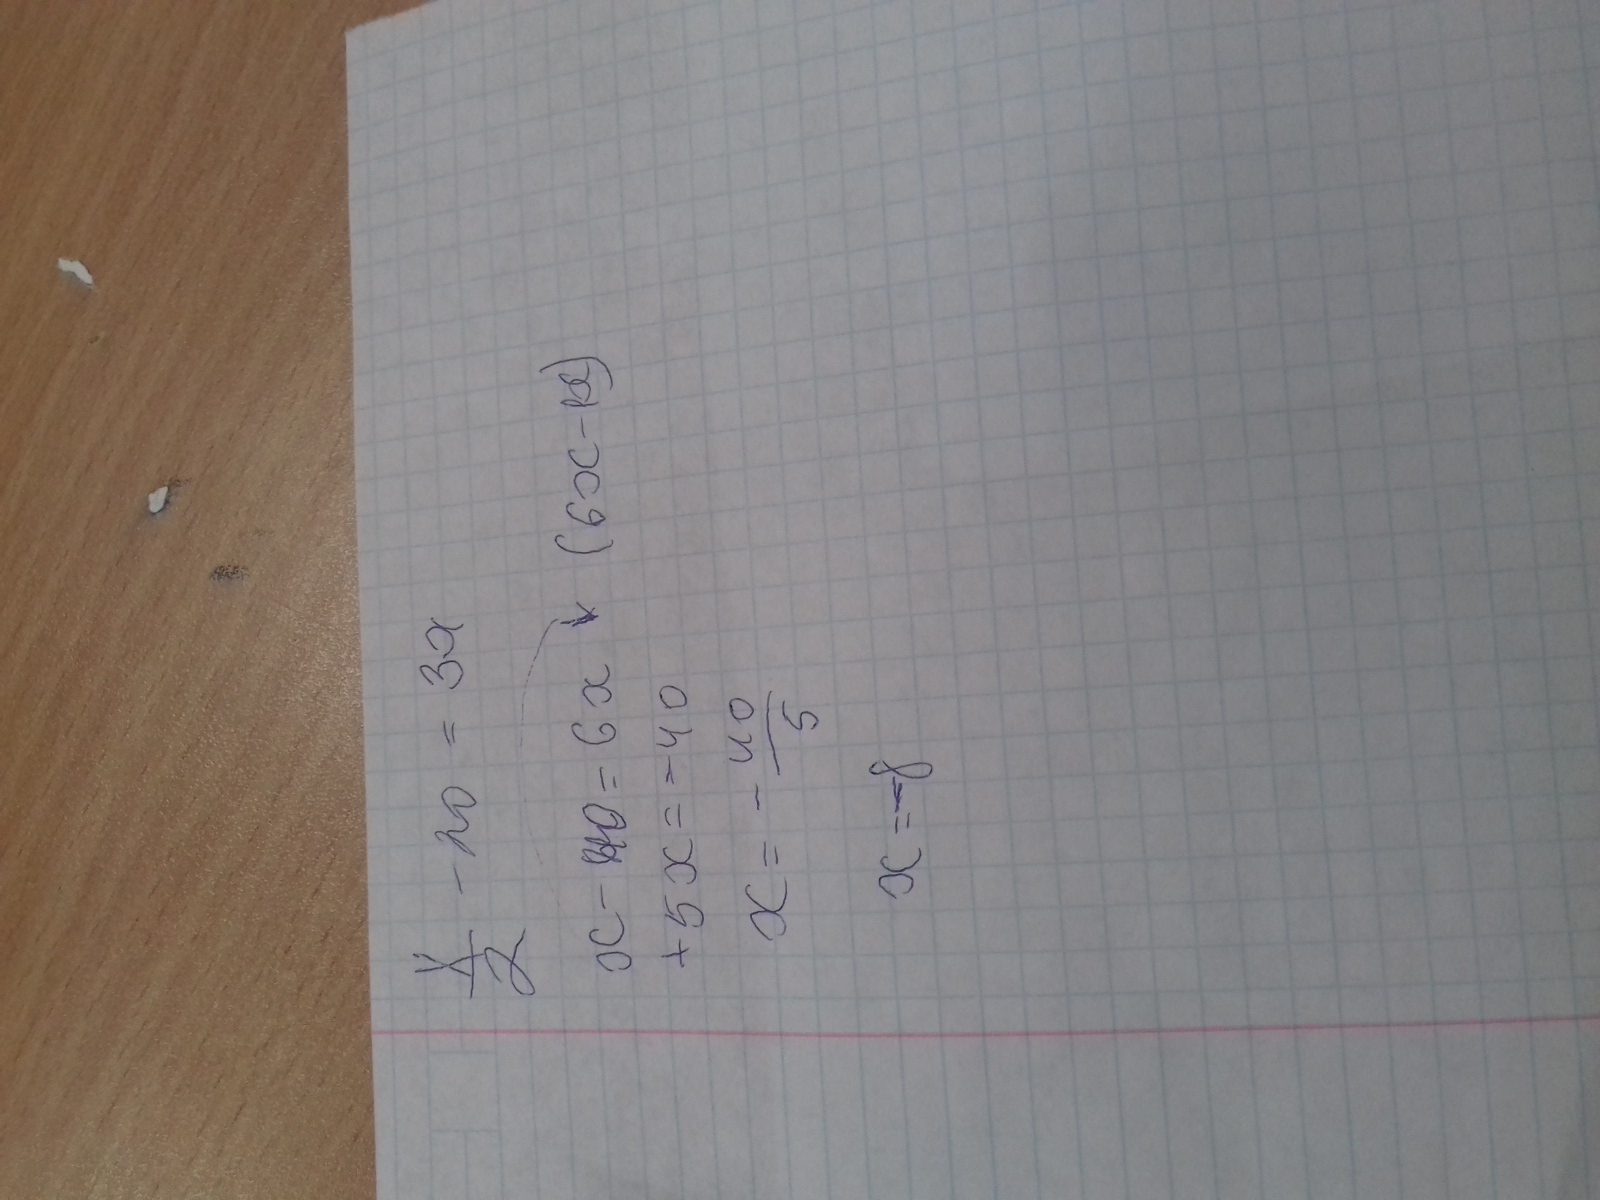 x/2 - 20 = 3x
x - 40 = 6x (6x - x)
+5x = -40
x = - 40/5
x = -8